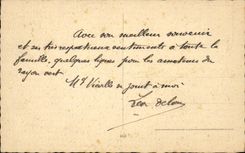 Avec son meilleur souvenir
et ses très respectueux sentiments à toute la
famille, quelques lignes pour les amateurs du
rayon vert
Mr Vieille se joint à moi